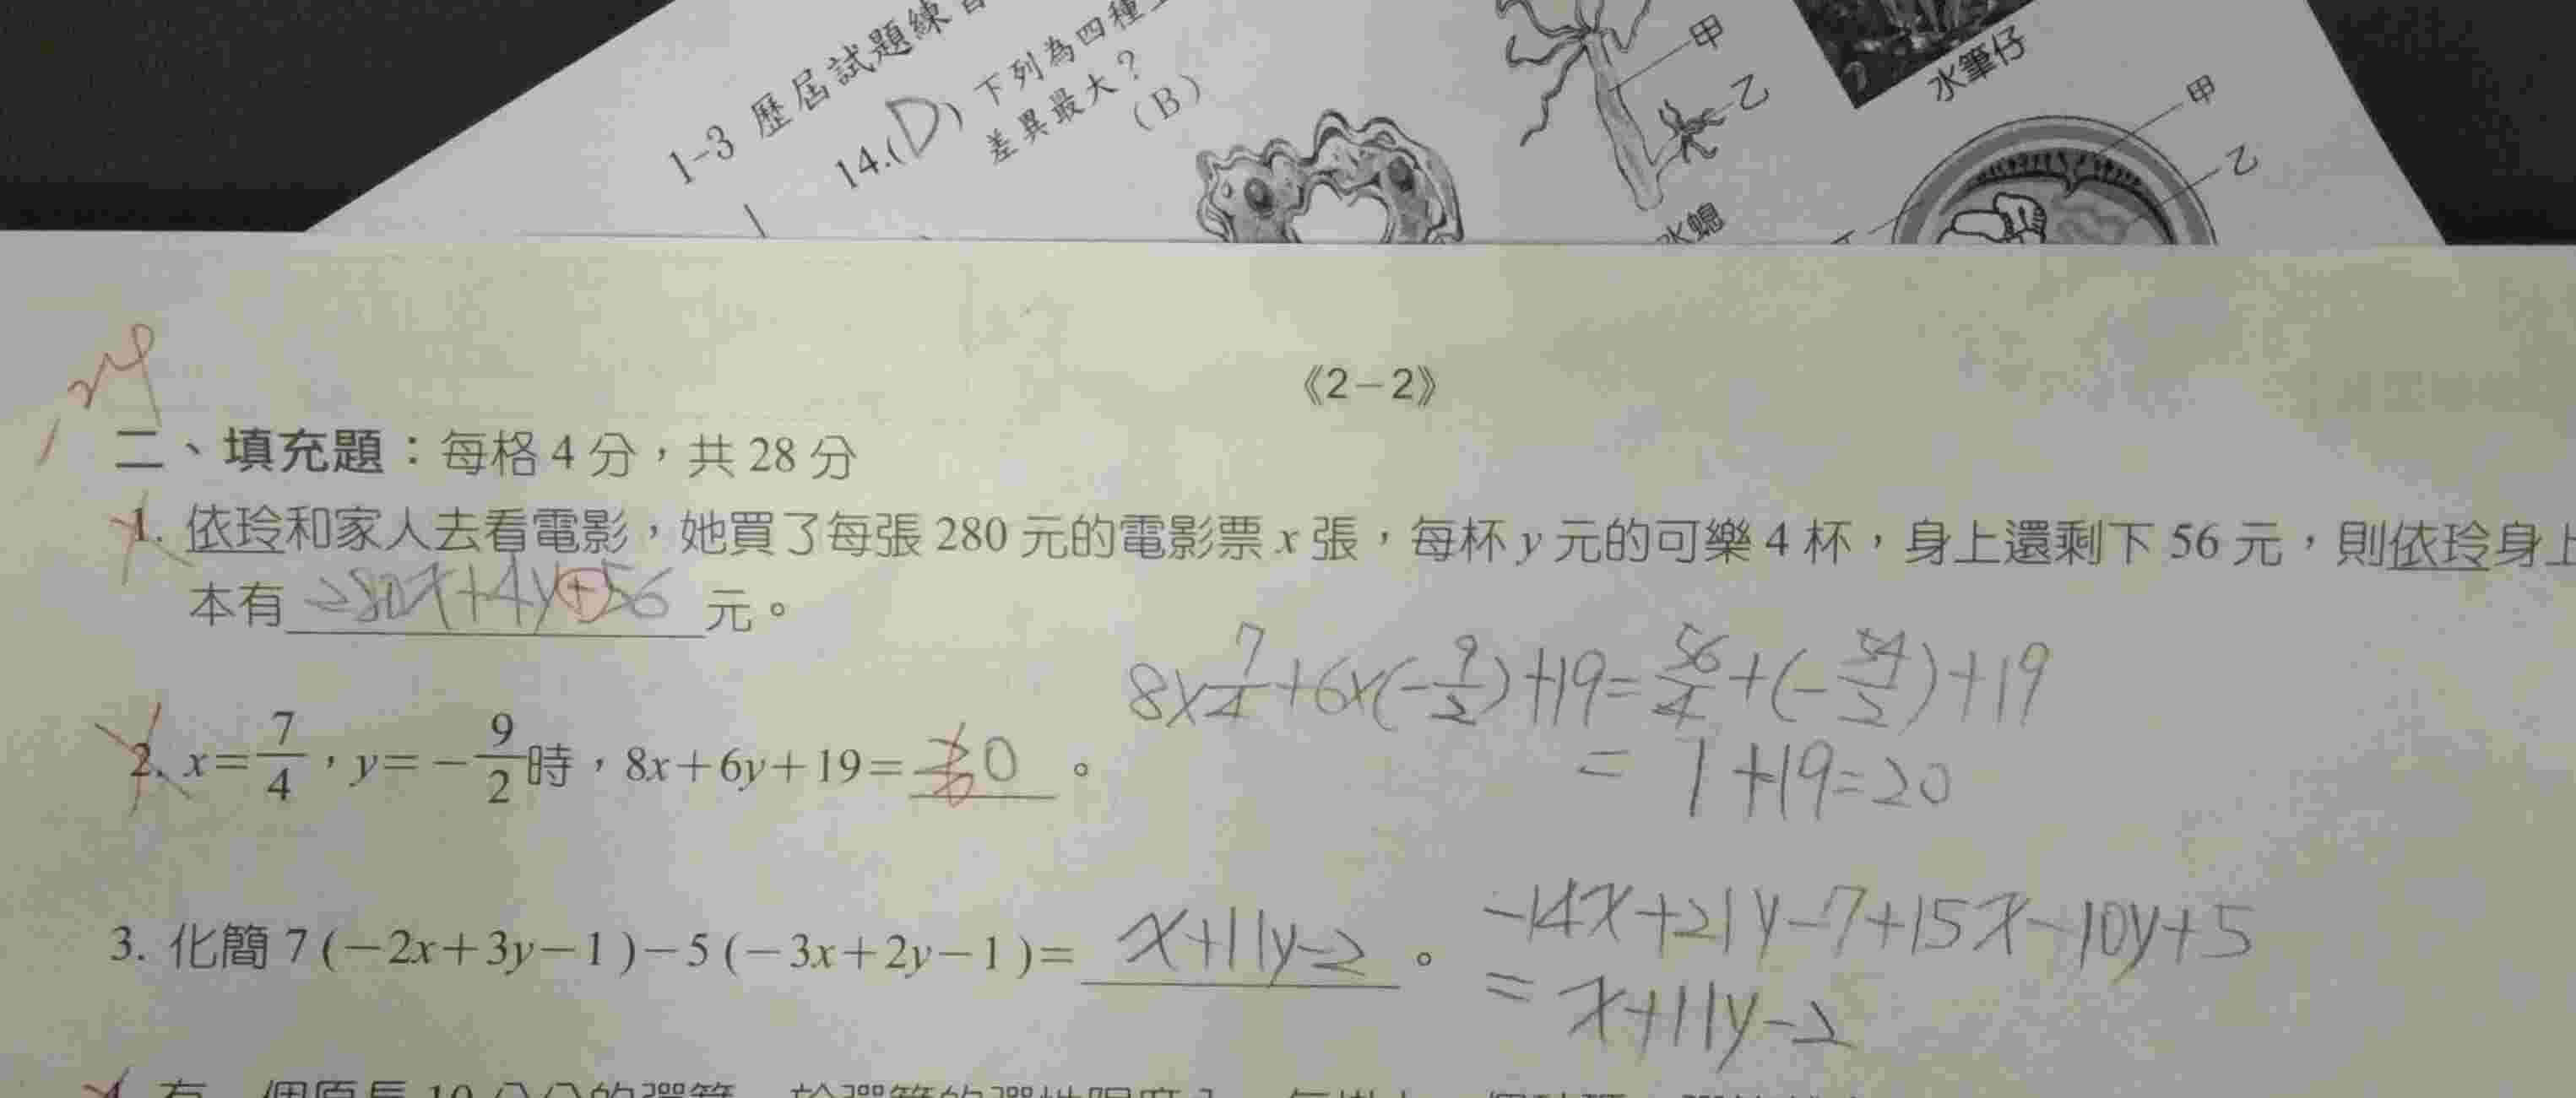 1-3 歷屆試題練習
14.(D) 下列為四種
差異最大？
(B)
甲
乙
水螅
水筆仔
甲
乙
丁
《2－2》
二、填充題：每格 4 分，共 28 分
1. 依玲和家人去看電影，她買了每張 280 元的電影票 x 張，每杯 y 元的可樂 4 杯，身上還剩下 56 元，則依玲身上
本有 280x+4y+56 元。
8×7/4+6×(-9/2)+19=56/4+(-54/2)+19
2. x=7/4，y=-9/2時，8x+6y+19= 0。
= 1+19=20
3. 化簡 7(-2x+3y-1)-5(-3x+2y-1)= x+11y-2。
-14x+21y-7+15x-10y+5
= x+11y-2